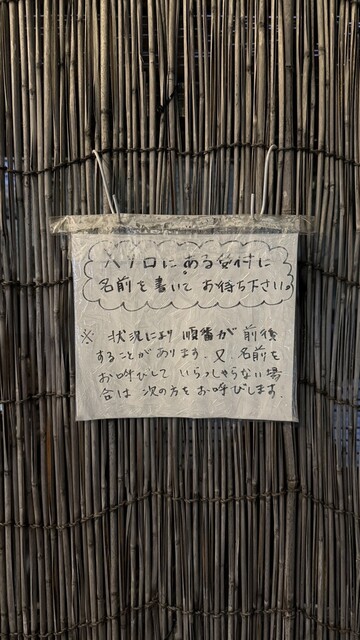 入り口にある受付に
名前を書いてお待ち下さい。
※ 状況により順番が前後
することがあります。又、名前を
お呼びしていらっしゃらない場
合は次の方をお呼びします。